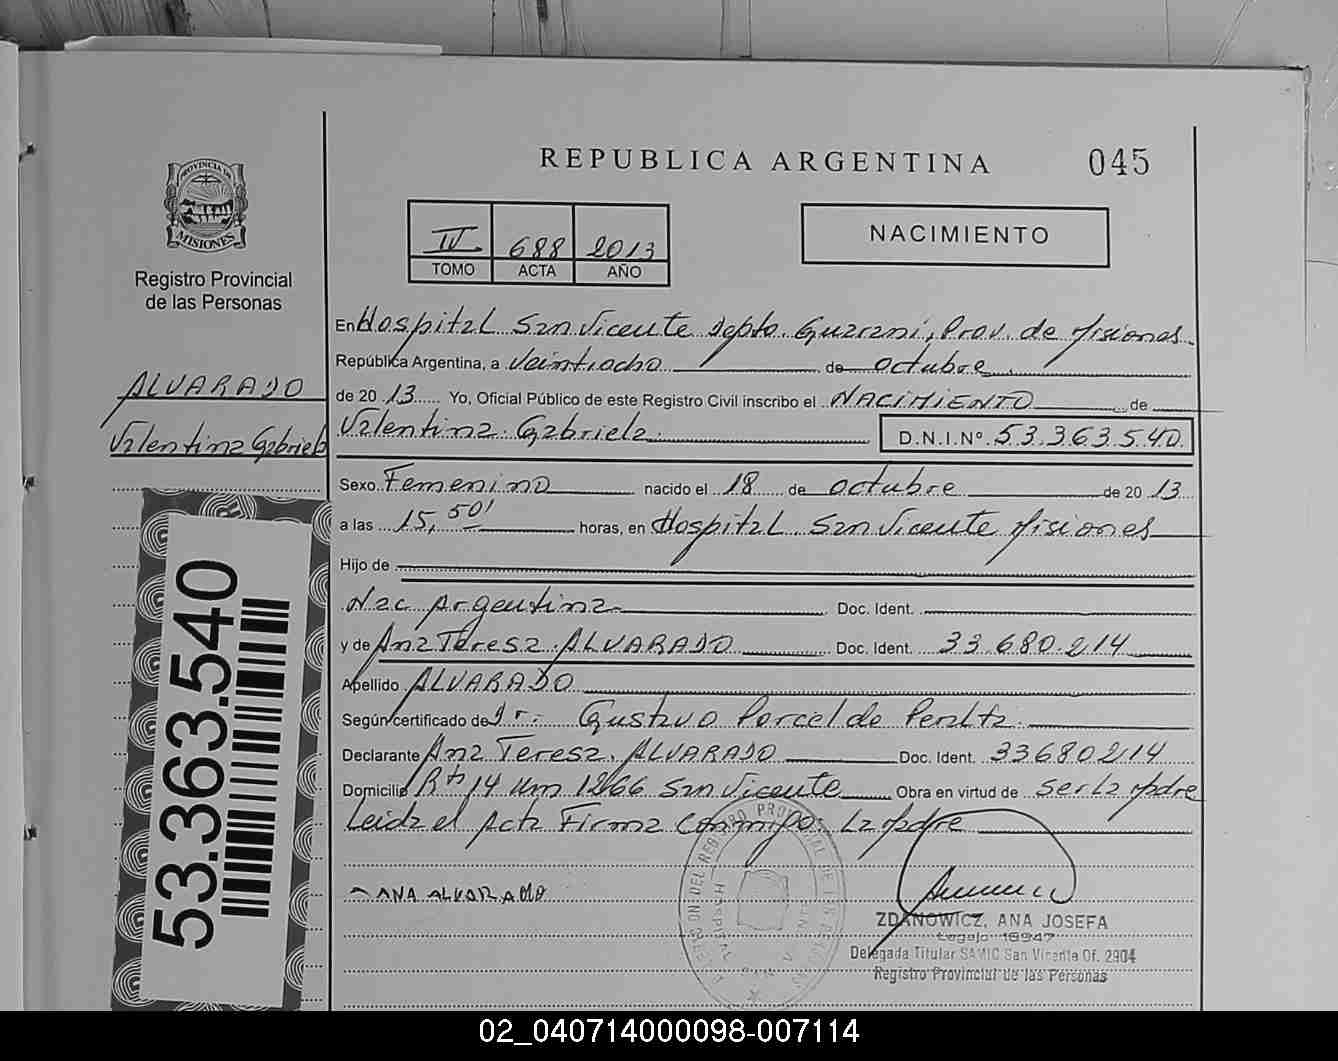 REPUBLICA ARGENTINA
045
PROVINCIA DE
MISIONES
Registro Provincial
de las Personas
IV 688 2013
TOMO ACTA AÑO
NACIMIENTO
En Hospital San Vicente Depto. Guaraní, Prov. de Misiones
República Argentina, a Veintiocho de octubre
de 20 13 Yo, Oficial Público de este Registro Civil inscribo el NACIMIENTO de
Valentina Gabriela D.N.I.Nº 53.363.540
ALVARADO
Valentina Gabriela
Sexo Femenino nacido el 18 de octubre de 20 13
a las 15,50' horas, en Hospital San Vicente Misiones
Hijo de
Nac Argentina Doc. Ident.
y de Ana Teresa ALVARADO Doc. Ident. 33.680.214
Apellido ALVARADO
Según certificado de Dr. Gustavo Porcel de Peralta
Declarante Ana Teresa ALVARADO Doc. Ident. 33680214
Domicilio Rta 14 Km 1266 San Vicente Obra en virtud de Ser La Madre
Leida el Acta Firma Conmigo: La Madre
53.363.540
ANA ALVARADO
ZDANOWICZ, ANA JOSEFA
Legajo 16947
Delegada Titular SAMIC San Vicente Of. 2904
Registro Provincial de las Personas
02_040714000098-007114